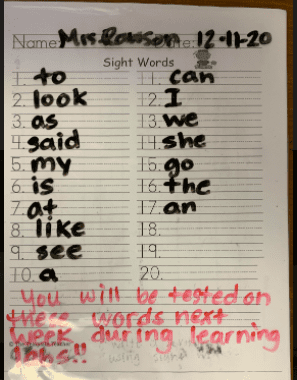 Name: Mrs. Rawson Date: 12-11-20
Sight Words
1. to
2. look
3. as
4. said
5. my
6. is
7. at
8. like
9. see
10. a
11. can
12. I
13. we
14. she
15. go
16. the
17. an
18.
19.
20.
You will be tested on
these words next
week during learning
labs!!